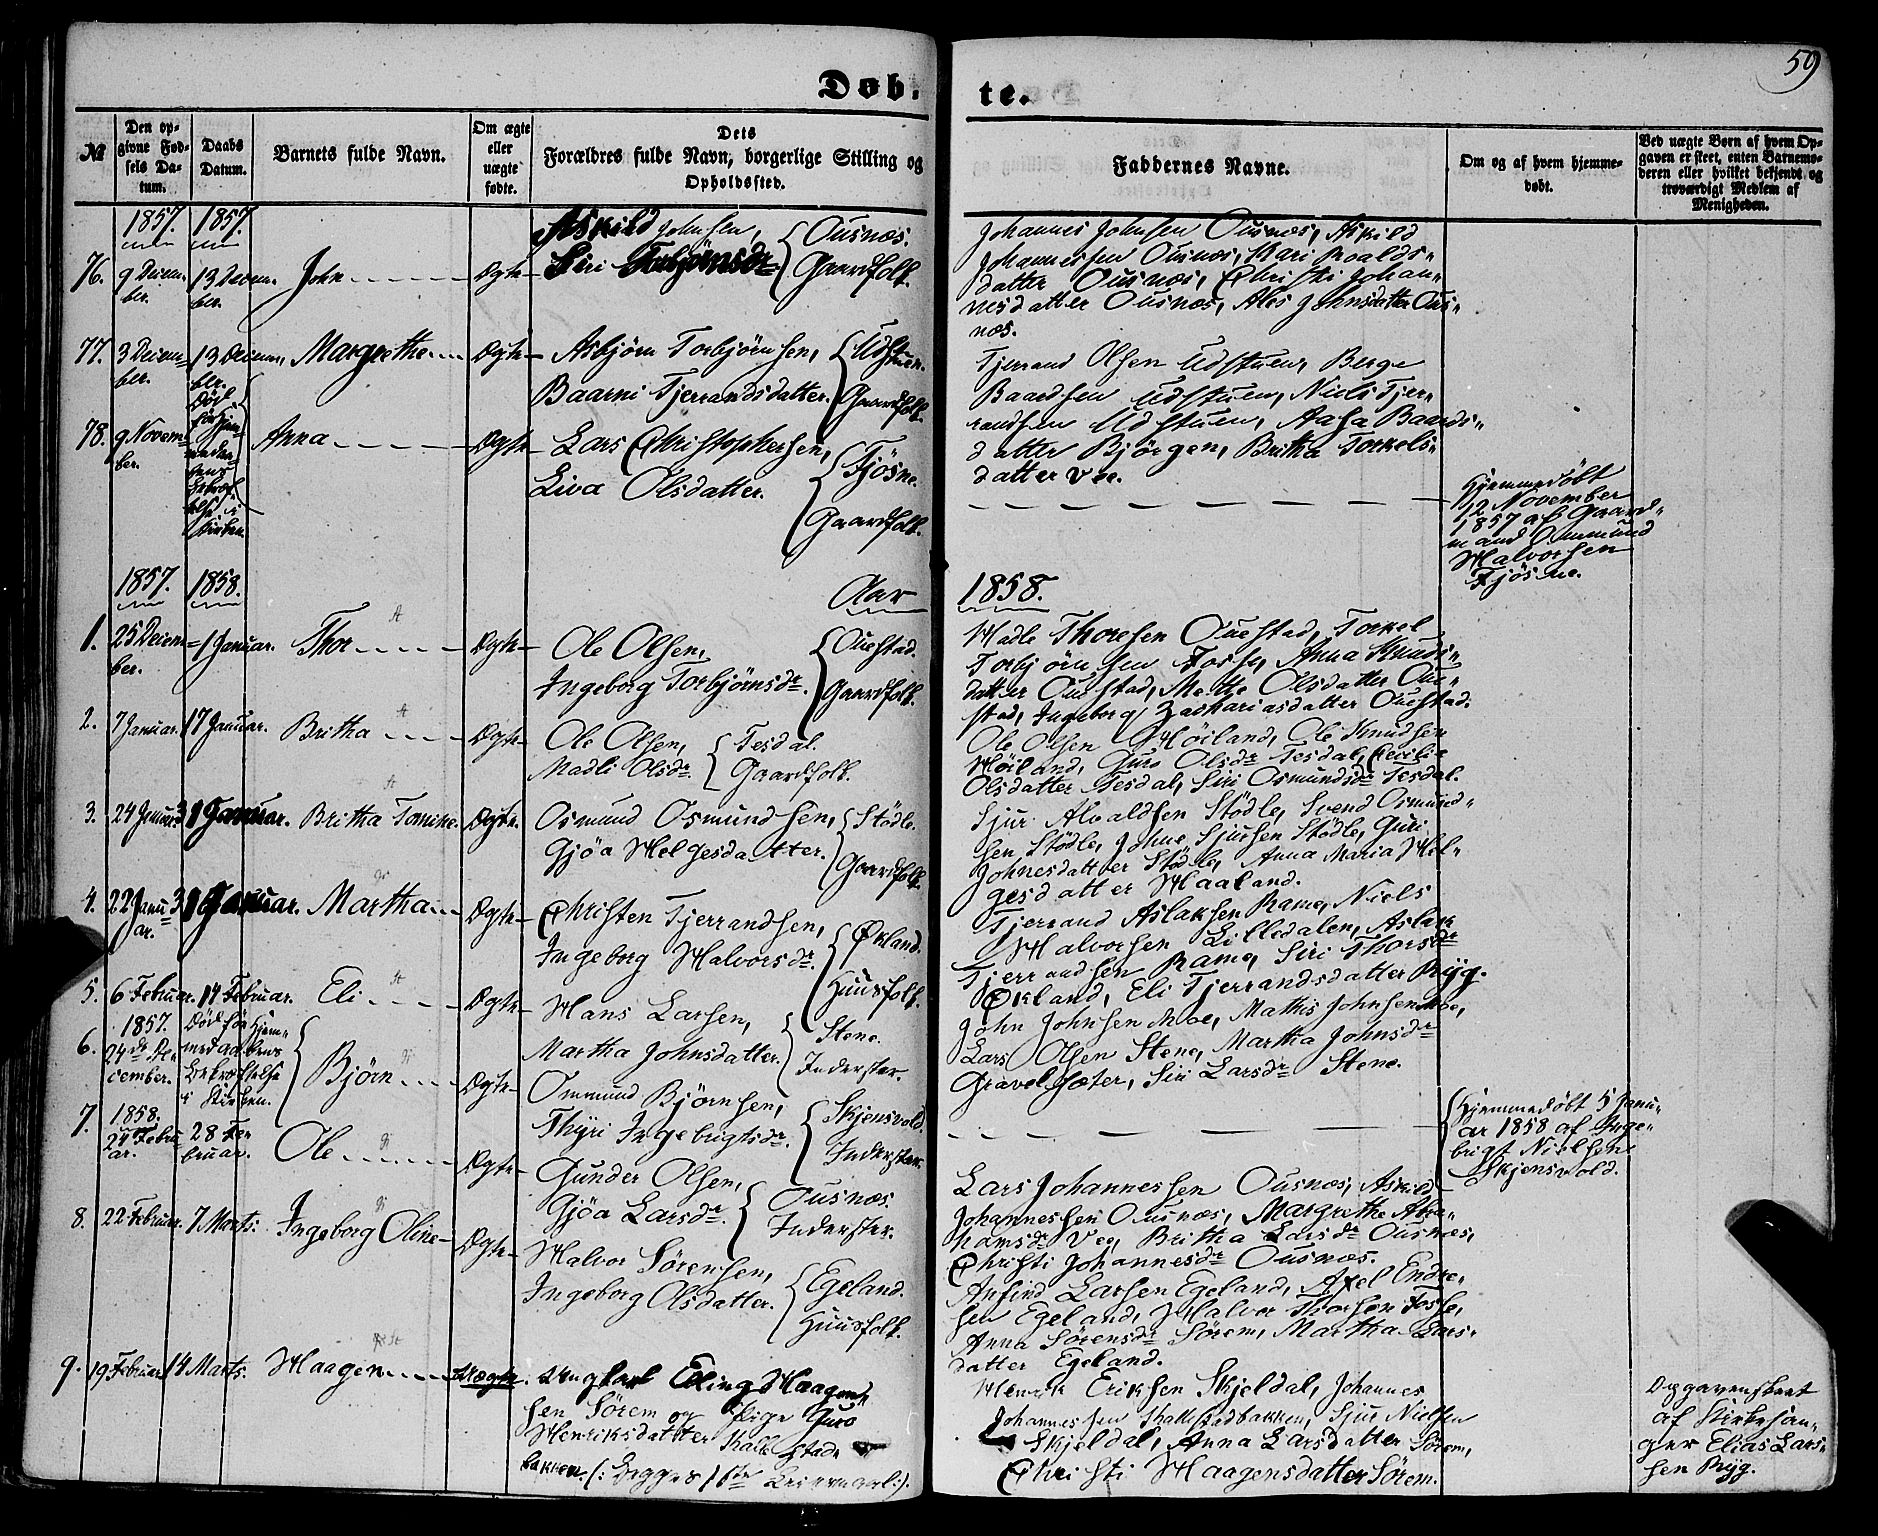 59
Døb- te.
№
Den opgivne Fødsels Datum.
Daabs Datum.
Barnets fulde Navn.
Om ægte eller uægte fødte.
Dets Forældres fulde Navn, borgerlige Stilling og Opholdssted.
Faddernes Navne.
Om og af hvem hjemmedøbt.
Ved uægte Børn af hvem Opgaven er skeet, enten Barnemoderen eller hvilket bekjendt og troværdigt Medlem af Menigheden.
1857. 1857.
76. 9 Decem-
ber.
13 Decem-
ber.
John
Ægte
Askild Johnsen,
Siri Torbjörnsdr
Ousnæs.
Gaardfolk.
Johannes Johnsen Ousnæs, Askild
Johannessen Ousnæs, Kari Roalds-
datter Ousnæs, Christi Johan-
nesdatter Ousnæs, Ales Johnsdatter Ous-
næs.
77. 3 Decem-
ber.
13 Decem-
ber.
Margrethe
Ægte
Asbjörn Torbjörnsen,
Baarni Tjerrandsdatter.
Udstuen.
Gaardfolk.
Tjerrand Olsen Udstuen, Berge
Baardsen Udstuen, Niels Tjer-
randsen Udstuen, Aasa Baards-
datter Bjørgen, Britha Torkels-
datter Vee.
78. 9 Novem-
ber.
Död
før Hjem-
medaa-
bens
Bekræf-
telse i
Kirken.
Anna
Ægte
Lars Christophersen,
Liva Olsdatter.
Fjösne.
Gaardfolk.
Hjemmedöbt
12 November
1857 af Gaard-
mand Ommund
Halvorsen
Fjösne.
1857. 1858.
Aar 1858.
1. 25 Decem-
ber.
1 Januar.
Thor
Ægte
Ole Olsen,
Ingeborg Torbjørnsdr.
Ouestad.
Gaardfolk.
Madle Thoresen Ouestad, Torkel
Torbjörnsen Fosse, Anna Knuds-
datter Ouestad, Mette Olsdatter Oue-
stad, Ingeborg Zachariasdatter Ouestad.
2. 7 Januar. 17 Januar.
Britha
Ægte
Ole Olsen,
Madli Olsdr.
Tesdal.
Gaardfolk.
Ole Olsen Höiland, Ole Knudsen
Höiland, Guro Olsdr Tesdal, Cecilie
Olsdatter Tesdal, Siri Osmundsdr Tesdal.
3. 24 Januar 31 Januar.
Britha Tomine.
Ægte.
Osmund Osmundsen,
Gjöa Helgesdatter.
Stödle.
Gaardfolk.
Sjur Alvaldsen Stödle, Svend Osmund-
sen Stödle, Johne Sjursen Stödle, Guri
Johnesdatter Stödle, Anna Maria Hel-
gesdatter Haaland.
4. 22 Janu-
ar.
31 Januar.
Martha
Ægte
Christen Tjerrandsen,
Ingeborg Halvorsdr.
Økland.
Huusfolk.
Tjerrand Aslaksen Rame, Niels
Halvorsen Lilledalen, Aslak
Tjerrandsen Rame, Siri Thorsdr
Økland, Eli Tjerrandsdatter Ryg.
5. 6 Februar. 14 Februar.
Eli
Ægte
Hans Larsen,
Martha Johnsdatter.
Stene.
Inderster.
John Johnsen Moe, Mathis Johnsen Moe,
Lars Olsen Stene, Martha Johnsdr
Gravelsæter, Siri Larsdr Stene.
6. 1857.
24de De-
cember.
Död för Hjem-
medaabens
Bekræftelse
i Kirken.
Björn
Ægte
Ommund Björnsen,
Thyri Ingebrigtsdr.
Skjensvold.
Inderster.
Hjemmedöbt 5 Janu-
ar 1858 af Inge-
brigt Nielsen
Skjensvold.
7. 1858.
24 Febru-
ar.
28 Fe-
bruar.
Ole
Ægte
Gunder Olsen,
Gjöa Larsdr.
Ousnæs.
Inderster.
Lars Johannessen Ousnæs, Askild
Johannessen Ousnæs, Margrethe Abra-
hamsdr Vee, Britha Larsdr Ousnæs,
Christi Johannesdr Ousnæs.
8. 22 Februar. 7 Marts.
Ingeborg Oline
Ægte
Halvor Sörensen,
Ingeborg Olsdatter.
Egeland.
Huusfolk.
Anfind Larsen Egeland, Axel Endre-
sen Egeland, Halvor Thorsen Fosse,
Anna Sörensdr Sörem, Martha Lars-
datter Egeland.
9. 19 Februar 14 Marts.
Haagen
Uægte.
Ungkarl Elling Haagen-
sen Sörem og Pige Guro
Henriksdatter Skallestad-
bakken. (: Begges 1ste Leiermaal:).
Henrik Eriksen Skjeldal, Johannes
Johannessen Skallestadbakken, Sjur Nielsen
Skjeldal, Anna Larsdatter Sörem,
Christi Haagensdatter Sörem.
Opgaven skeet
af Kirkesan-
ger Elias Lars-
sen Ryg.